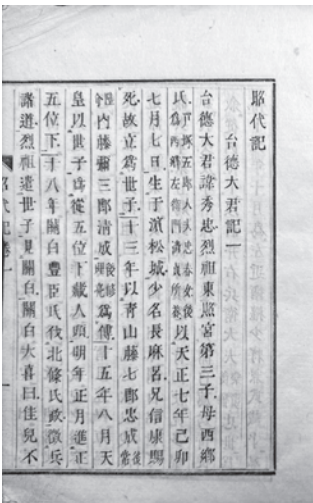 昭代記
台德大君記一
台德大君諱秀忠烈祖東照宮第三子母西鄉
氏以天正七年己卯
七月七日生于濱松城少名長麻呂兄信康賜
死故立爲世子十三年以青山藤七郎忠成
內藤彌三郎清成爲傅十五年八月天
皇以世子爲從五位下藏人頭明年正月進正
五位下十八年關白豐臣氏伐北條氏政徵兵
諸道烈祖遣世子見關白關白大喜曰佳兒不
昭代記卷一